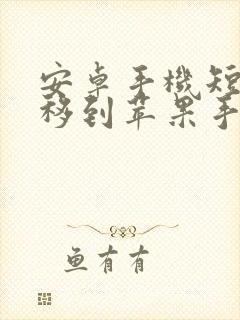 安卓手機短
移到苹果手
鱼有有